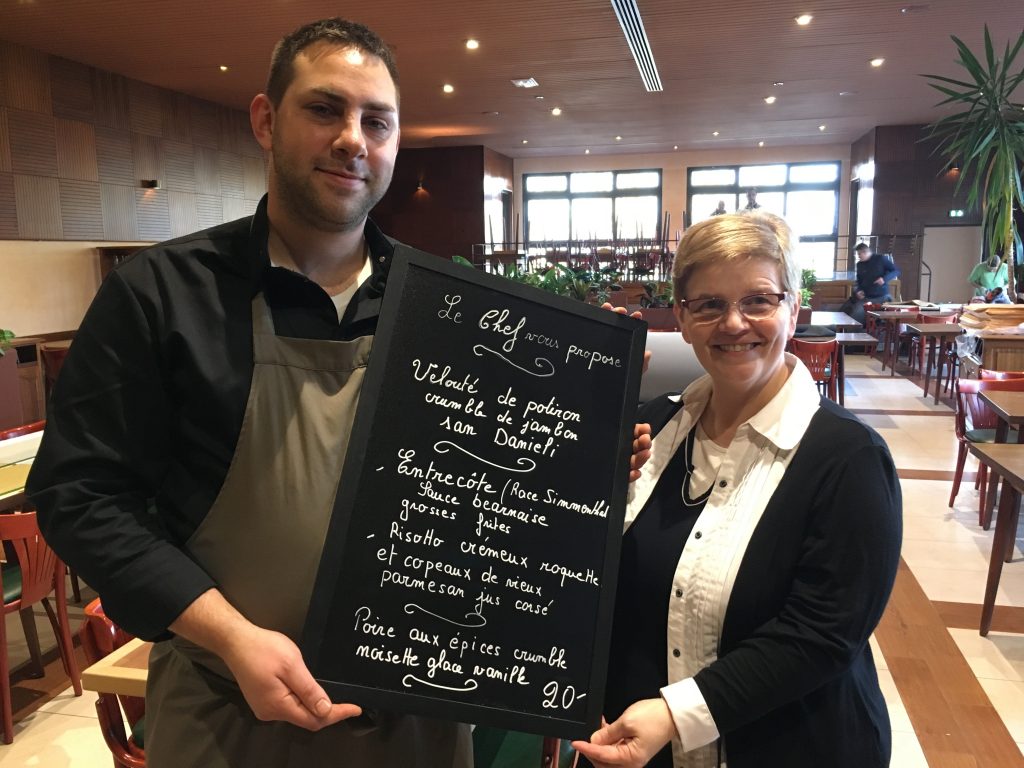 Le Chef vous propose
Velouté de potiron
crumble de jambon
san Danieli
- Entrecôte (Race Simmenthal
Sauce béarnaise
grosses frites
- Risotto crémeux roquette
et copeaux de vieux
parmesan jus corsé
Poire aux épices crumble
noisette glace vanille 20-